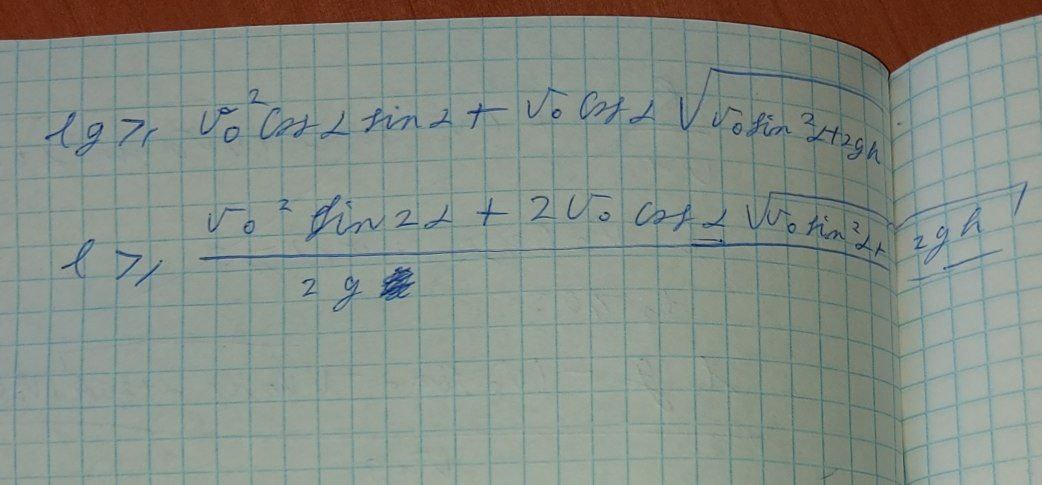 lg ⩾ v₀² cos α sin α + v₀ cos α √(v₀ sin² α + 2gh)
l ⩾ (v₀² sin 2α + 2v₀ cos α √(v₀ sin² α + 2gh)) / 2g